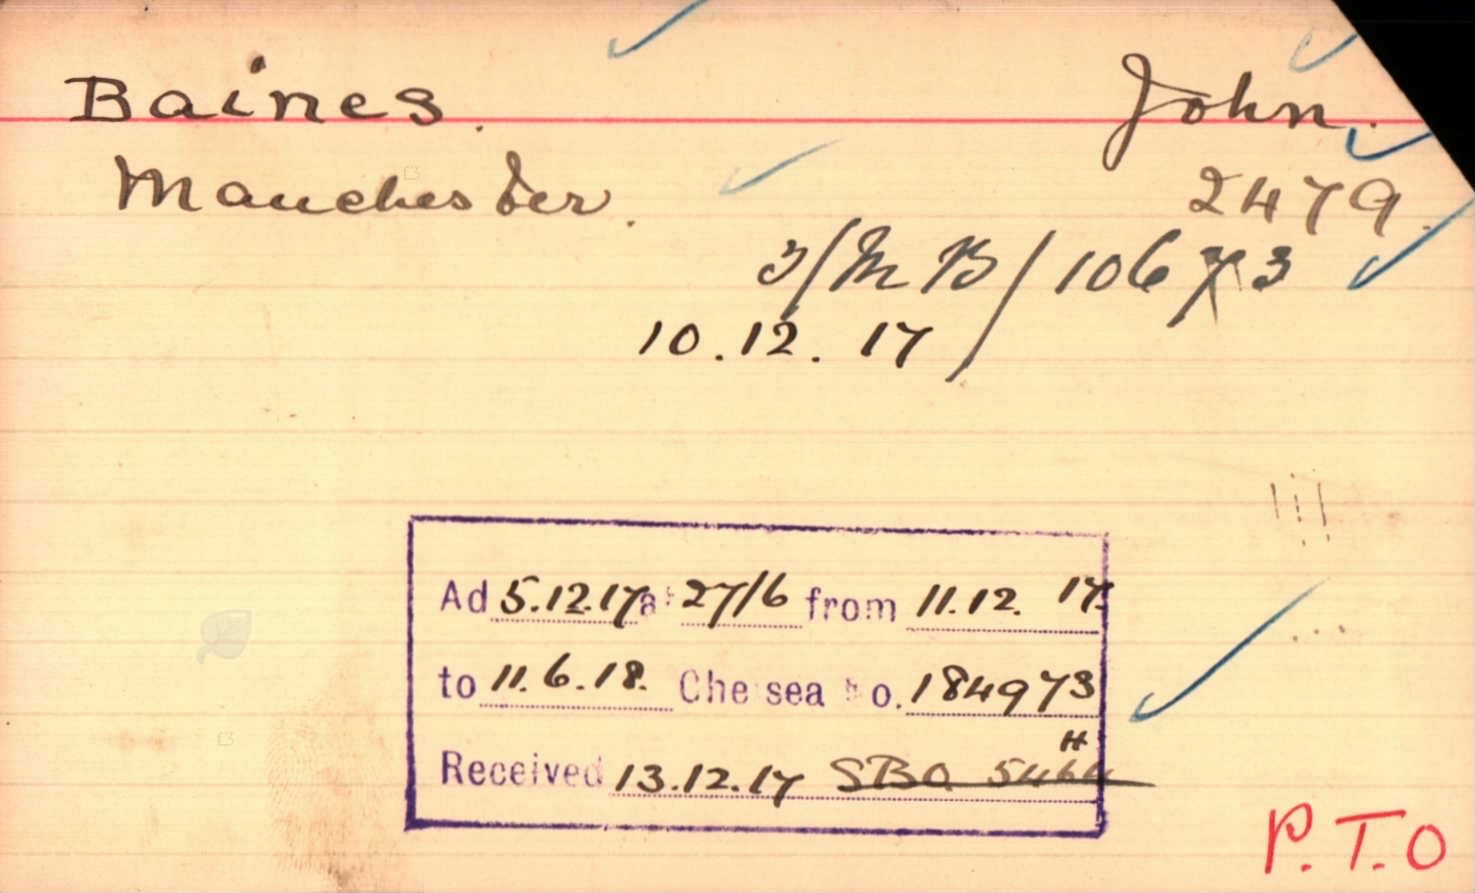 Baines. John.
Manchester. 2479.
3/MB/10673
10.12.17
Ad 5.12.17 at 27/6 from 11.12.17.
to 11.6.18. Chelsea No. 184973
Received 13.12.17 SBO 5464 H
P.T.O